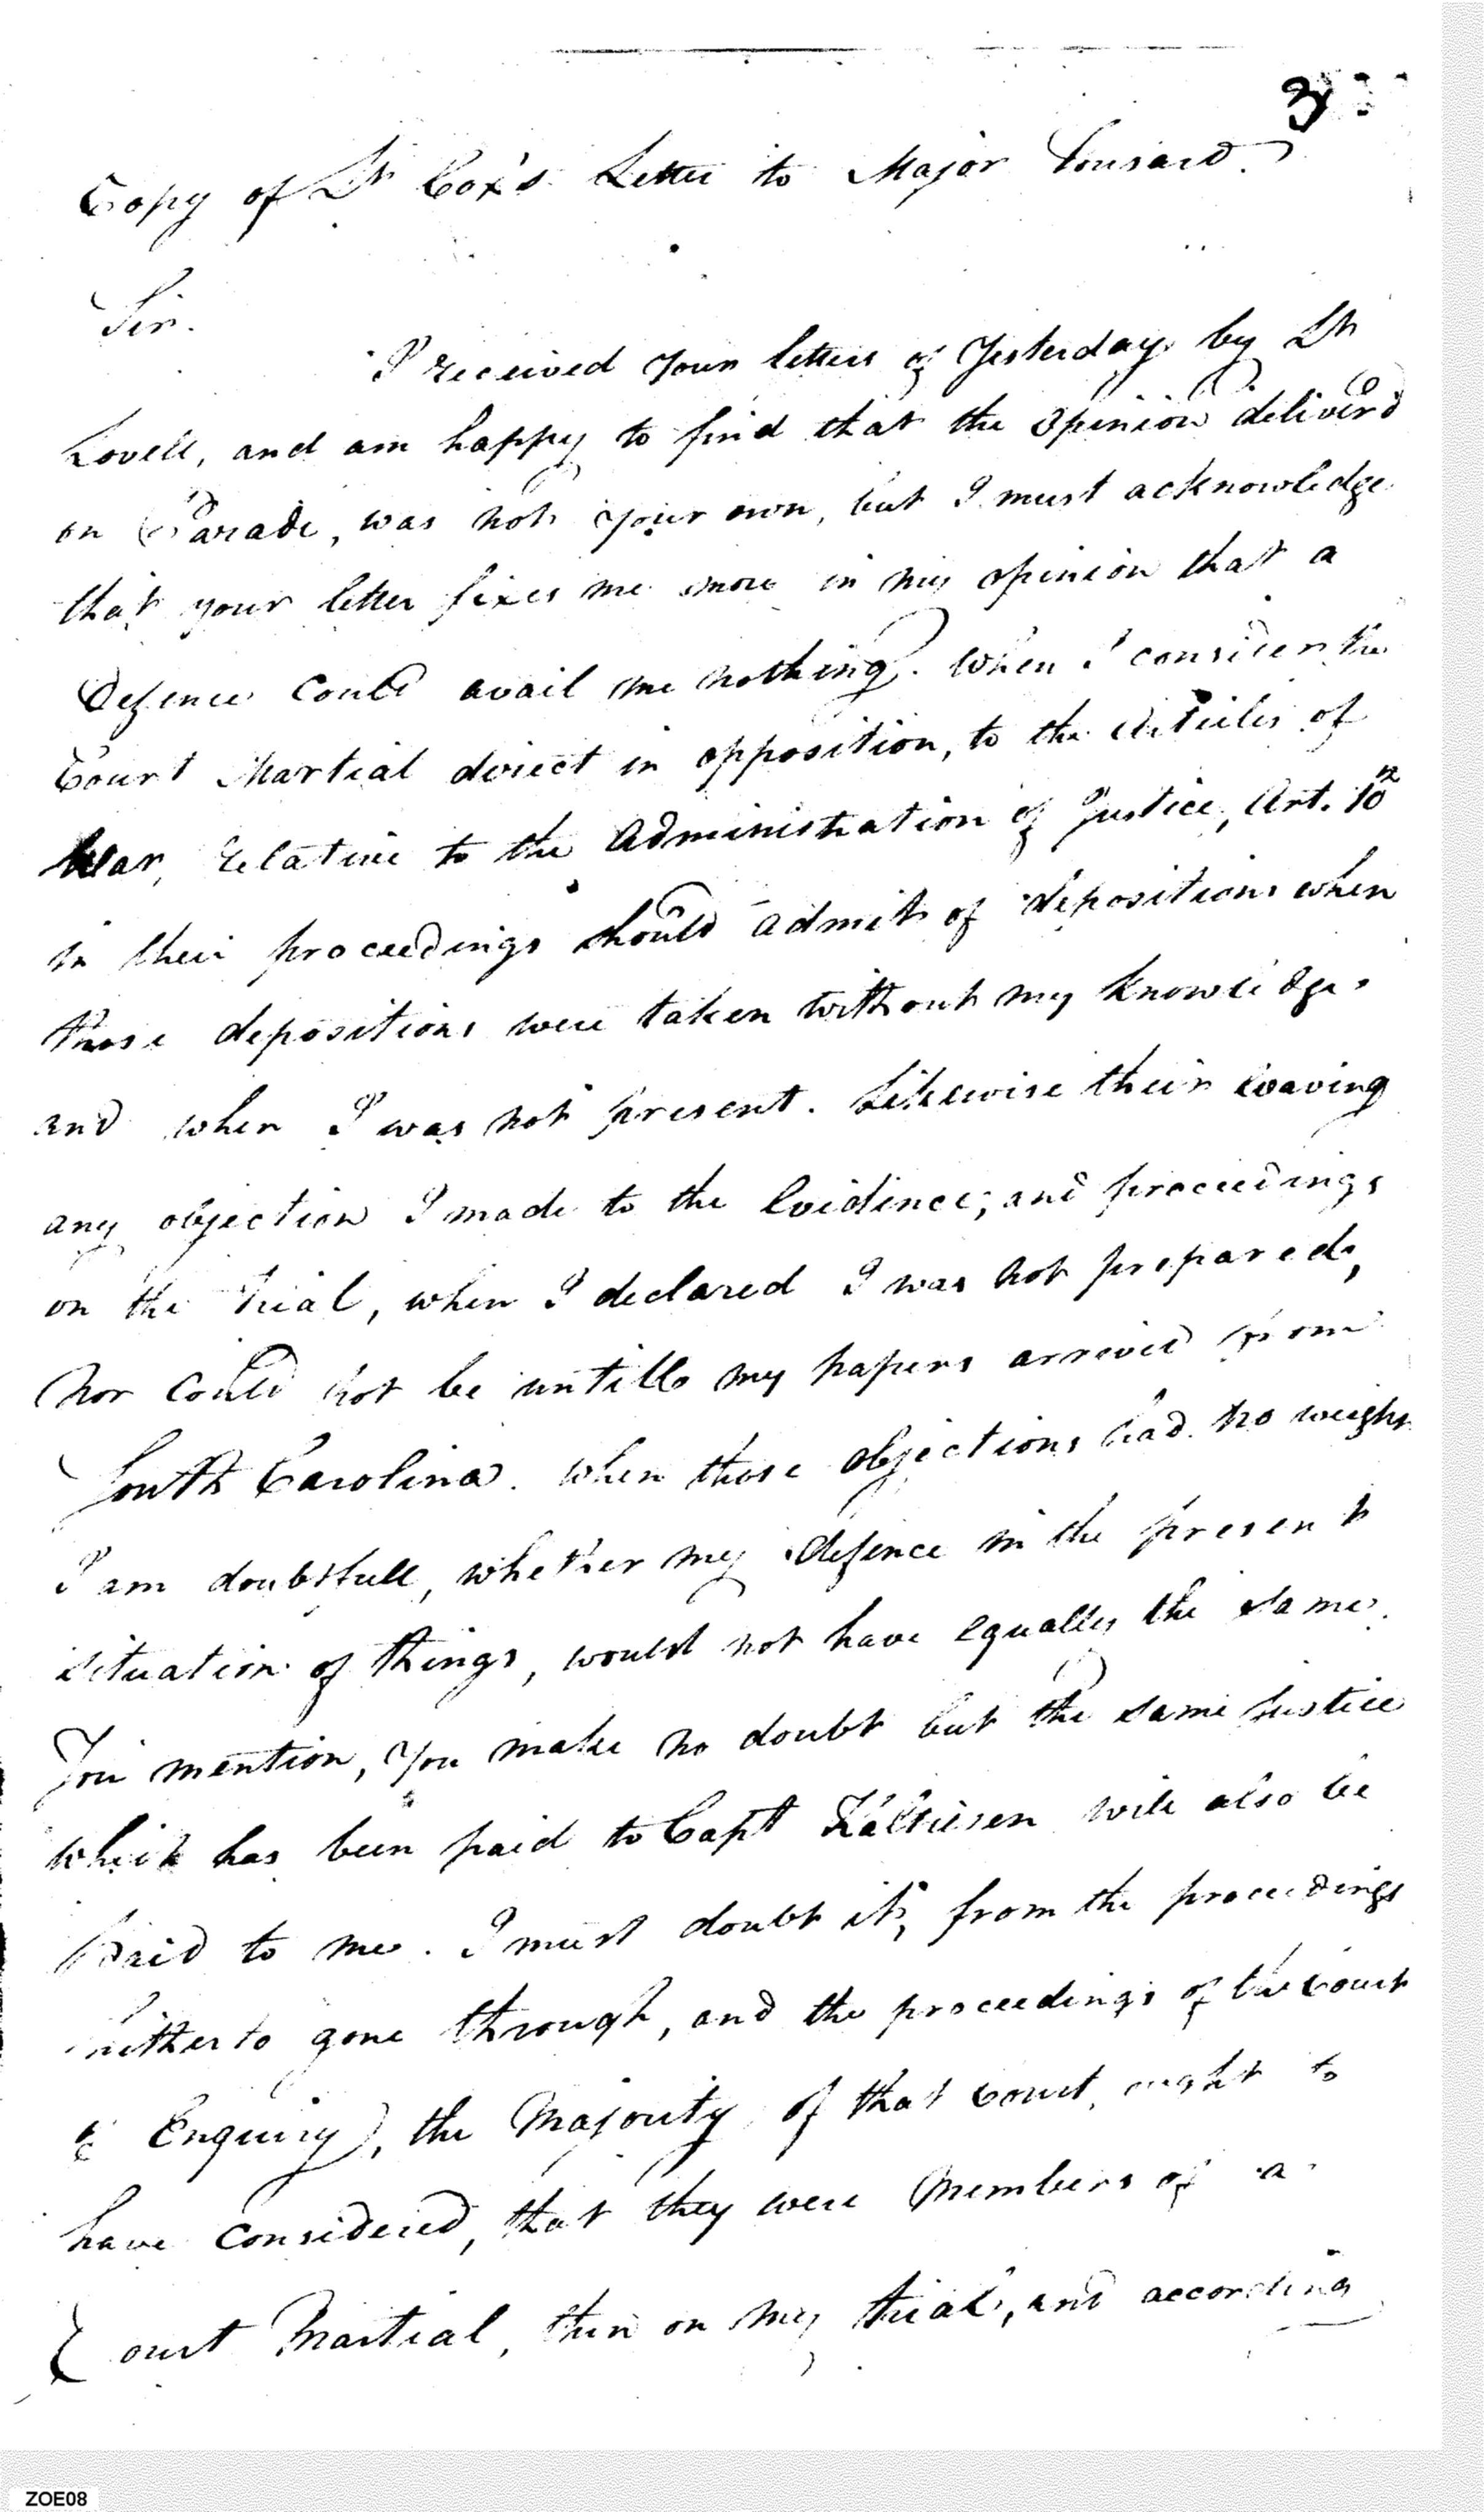 3
Copy of Lt Cox's Letter to Major Tousard.
Sir.
I received Your letter of Yesterday by Lt
Lovell, and am happy to find that the Opinion deliver'd
on Parade, was not your own, but I must acknowledge
that your letter fixes me more in my opinion that a
Defence Could avail me nothing. When I consider the
Court Martial direct in opposition, to the Articles of
War, relative to the Administration of Justice, Art. 10
in their proceedings should admit of depositions when
those depositions were taken without my knowledge,
and when I was not present. Likewise their waving
any objection I made to the Evidence, and proceedings
on the trial, when I declared I was not prepared,
Nor could not be untill my papers arrived from
South Carolina. When those objections had no weight
I am doubtfull, whether my defence in the present
situation of things, would not have equally the same.
You mention, You make no doubt but the same justice
which has been paid to Capt Kalteisen will also be
Paid to me. I must doubt it, from the proceedings
hitherto gone through, and the proceedings of the Court
of Enquiry, the Majority of that Court, ought to
have Considered, that they were Members of a
Court Martial, then on my trial, and according
ZOE08